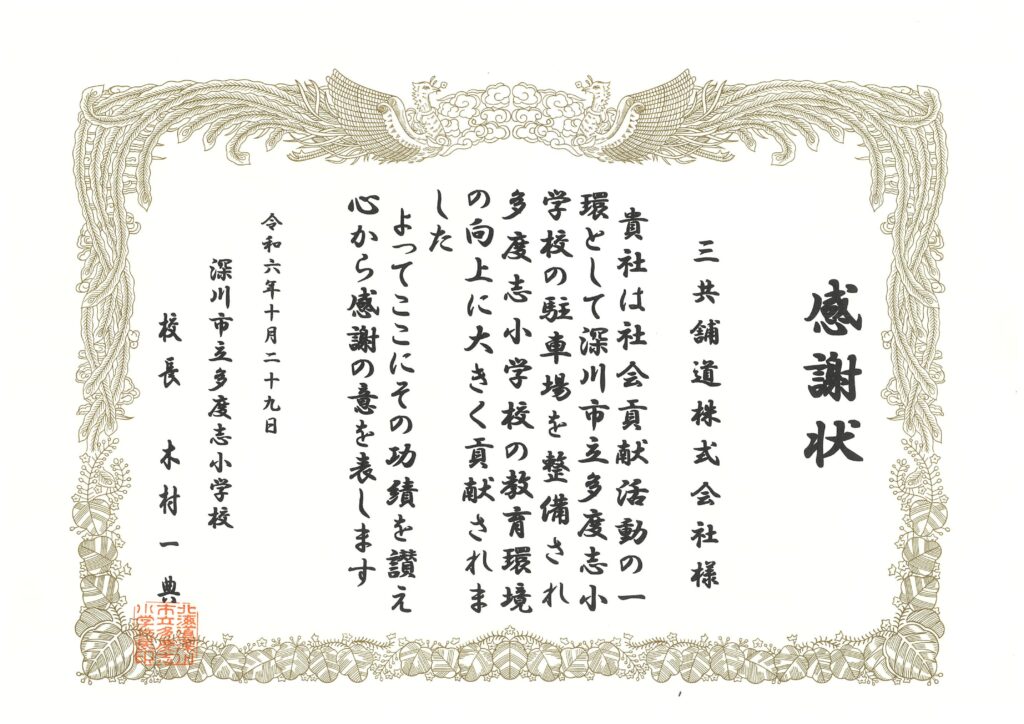 感謝状
三共舗道株式会社様
貴社は社会貢献活動の一
環として深川市立多度志小
学校の駐車場を整備され
多度志小学校の教育環境
の向上に大きく貢献されま
した
よってここにその功績を讃え
心から感謝の意を表します
令和六年十月二十九日
深川市立多度志小学校
校長 木村一典